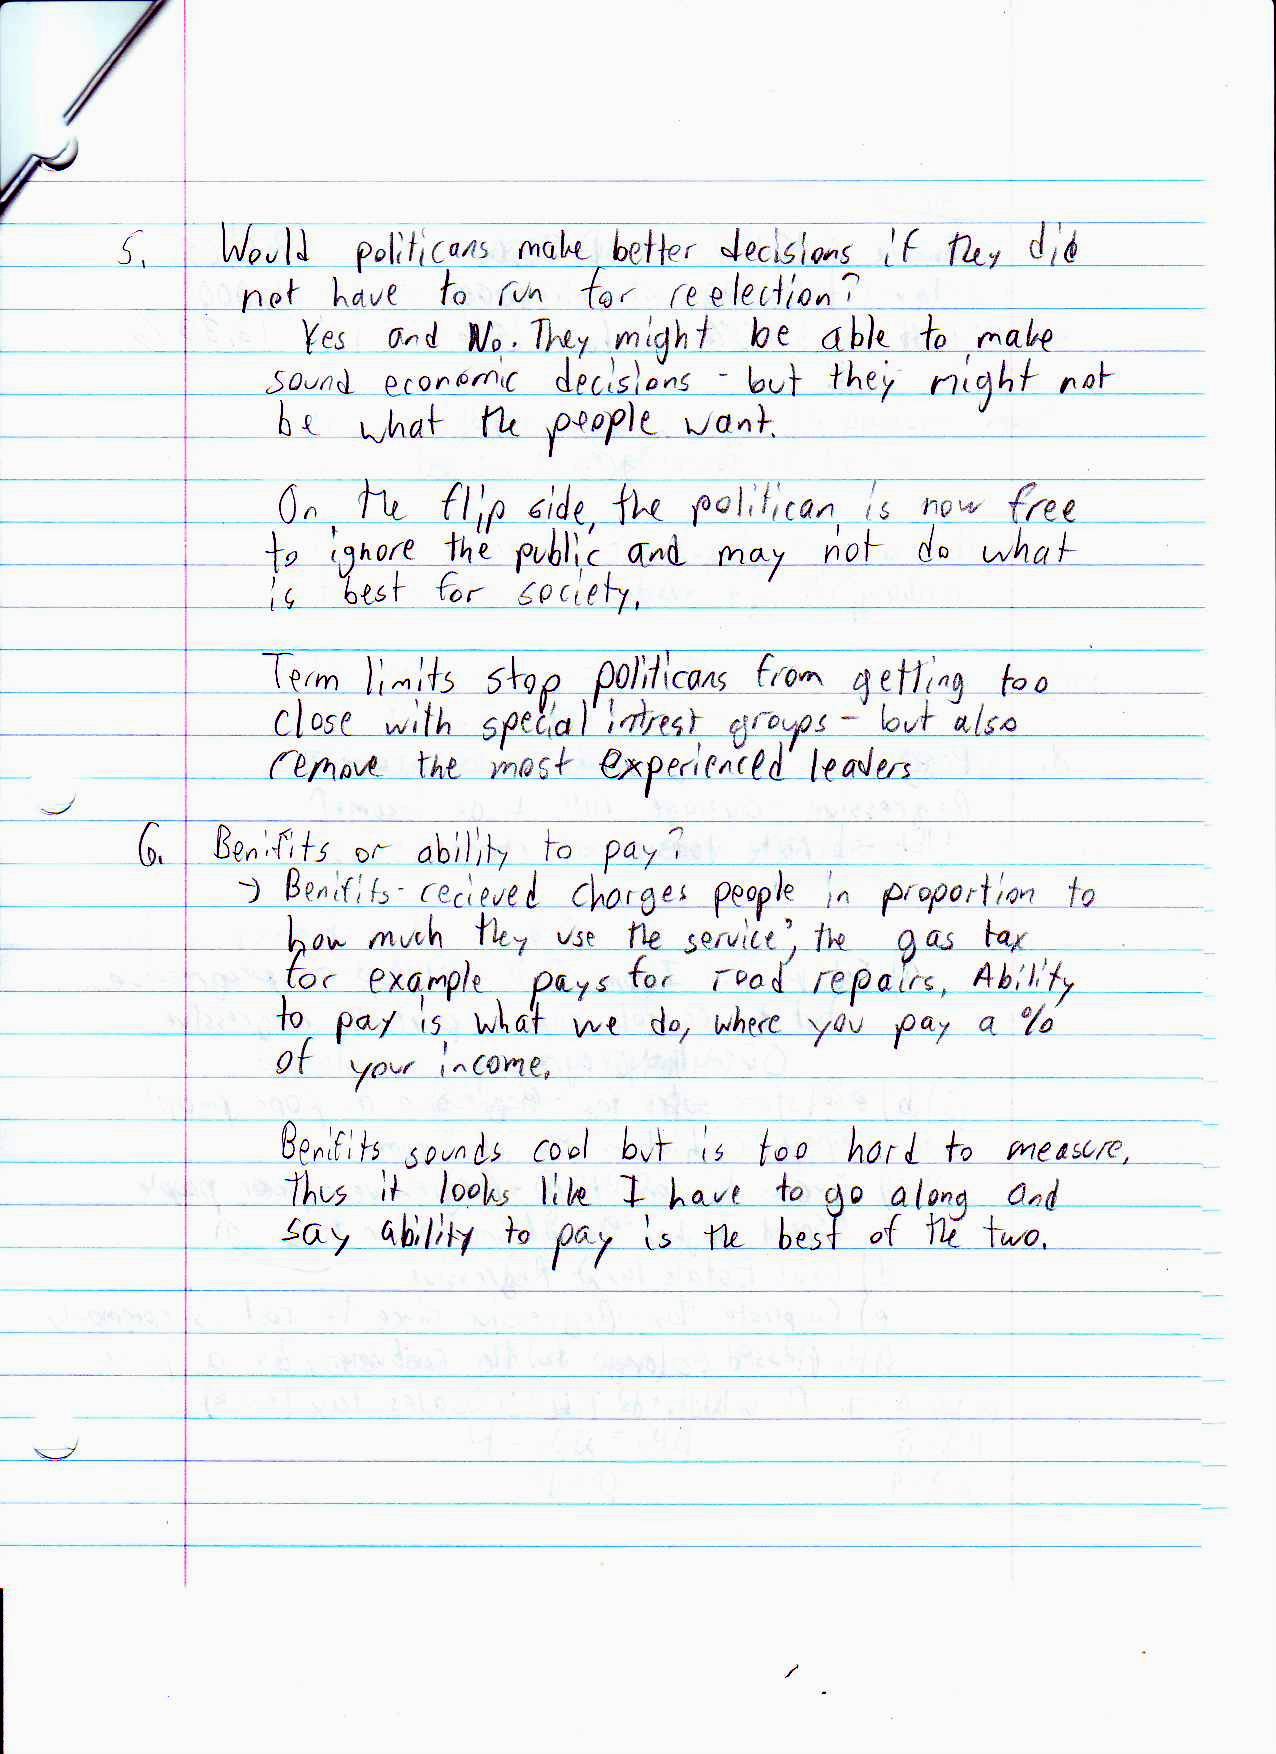 5. Would politicans make better decisions if they did
not have to run for reelection?
Yes and No. They might be able to make
sound economic decisions - but they might not
be what the people want.
On the flip side, the politican is now free
to ignore the public and may not do what
is best for society.
Term limits stop politicans from getting too
close with special intrest groups - but also
remove the most experienced leaders
6. Benifits or ability to pay?
→ Benifits-recieved charges people in proportion to
how much they use the service; the gas tax
for example pays for road repairs. Ability
to pay is what we do, where you pay a %
of your income.
Benifits sounds cool but is too hard to measure,
thus it looks like I have to go along and
say ability to pay is the best of the two.